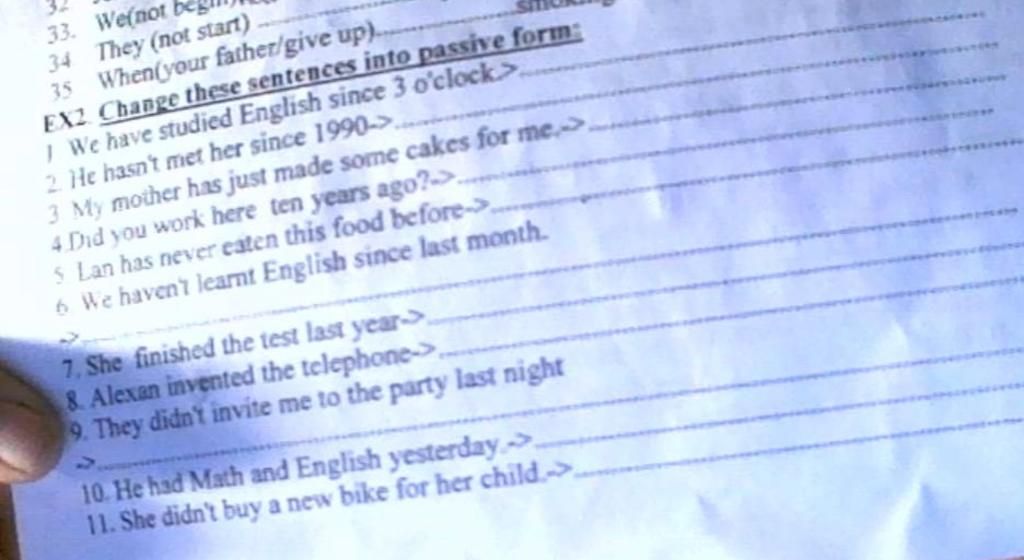 32
33. We(not
34 They (not start)
35 When(your father/give up)
EX2. Change these sentences into passive form:
1 We have studied English since 3 o'clock.>
2. He hasn't met her since 1990->
3 My mother has just made some cakes for me.->
4.Did you work here ten years ago?->
5. Lan has never eaten this food before->
6. We haven't learnt English since last month.
->
7. She finished the test last year->
8. Alexan invented the telephone->
9. They didn't invite me to the party last night
->
10. He had Math and English yesterday.->
11. She didn't buy a new bike for her child.->